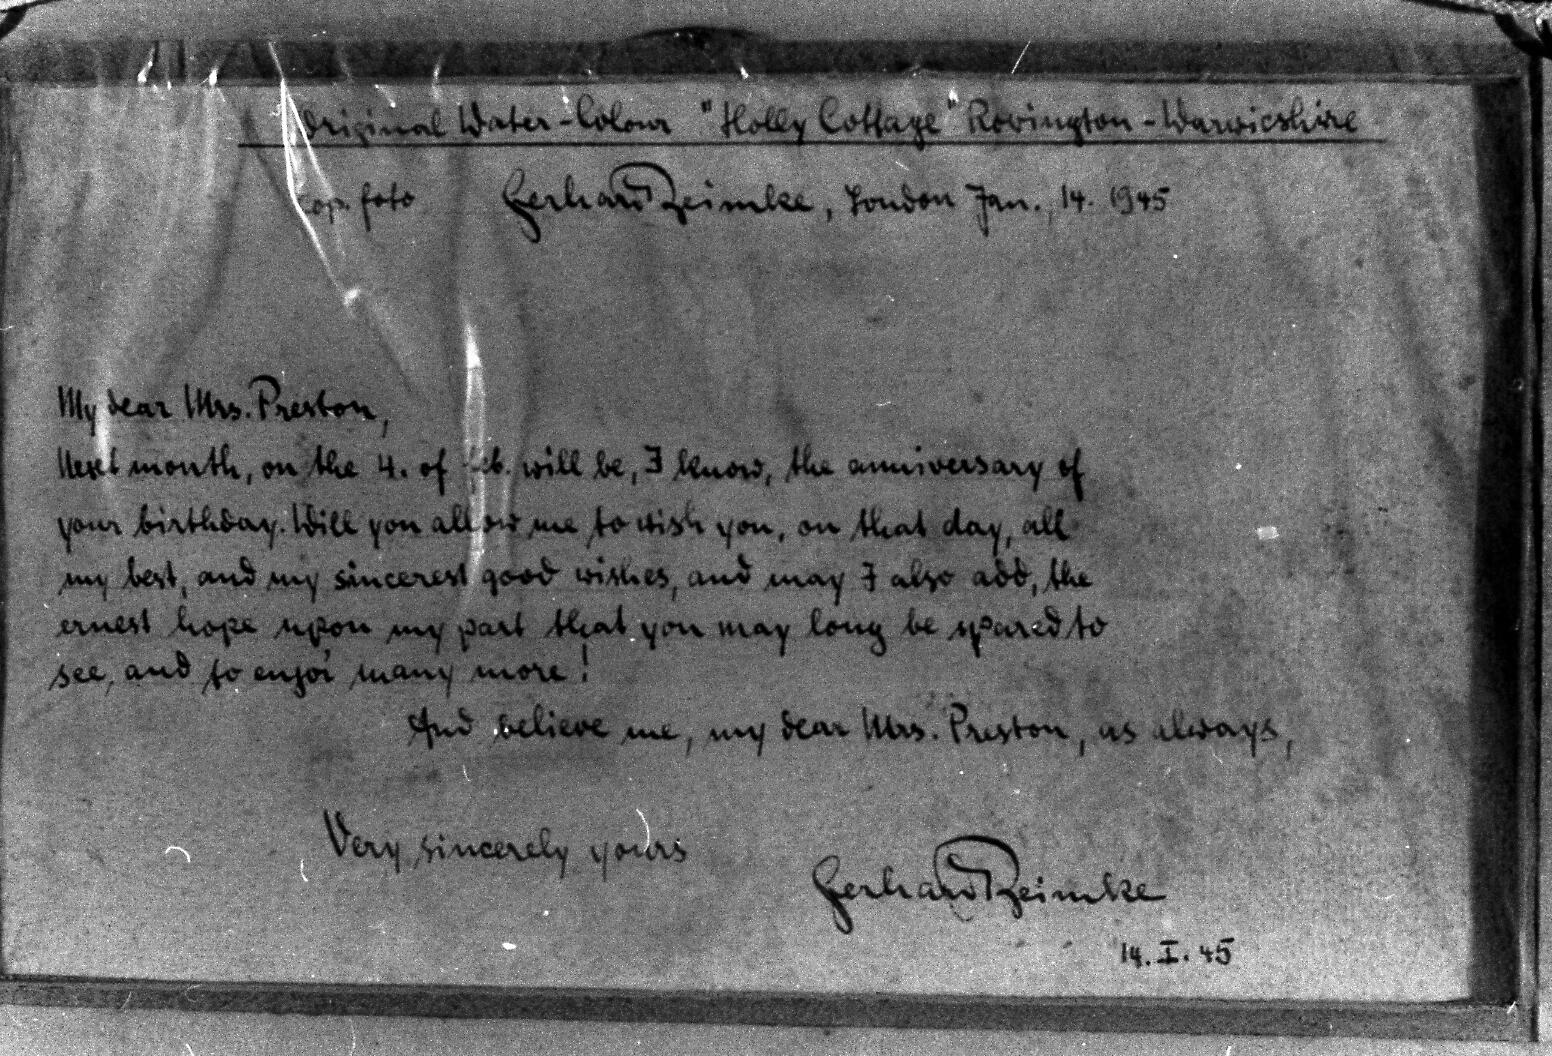 Original Water-Colour "Holly Cottage" Rovington - Warwicshire
cop. foto Gerhard Reimke, London Jan. 14. 1945
My dear Mrs. Preston,
Next month, on the 4. of Feb. will be, I know, the anniversary of
your birthday. Will you allow me to wish you, on that day, all
my best, and my sincerest good wishes, and may I also add, the
ernest hope upon my part that you may long be spared to
see, and to enjoi many more!
And believe me, my dear Mrs. Preston, as always,
Very sincerely yours
Gerhard Reimke
14. I. 45